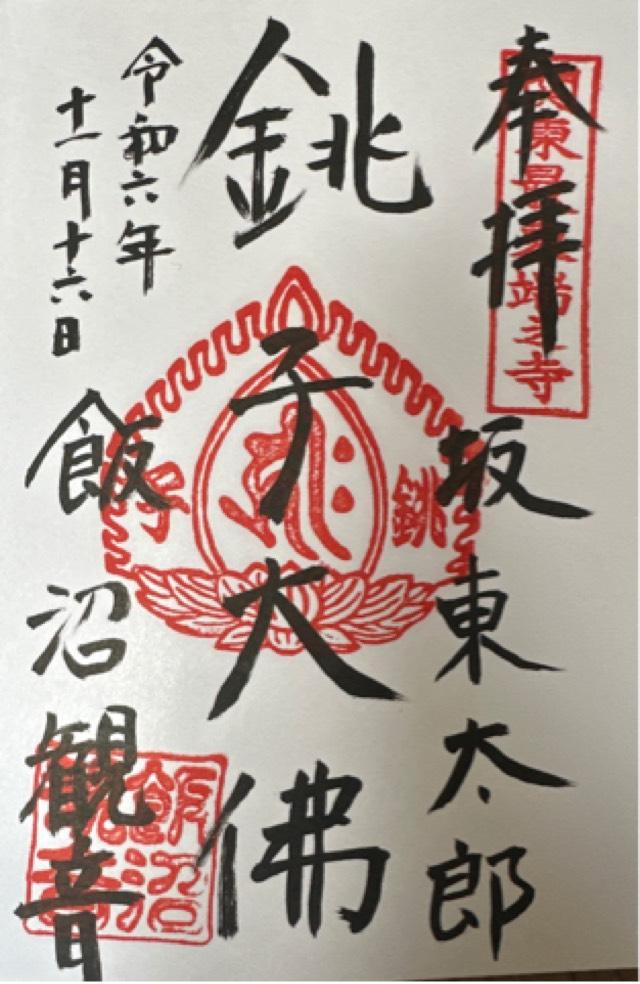 奉拝
関東最東端之寺
坂東太郎
銚子大佛
銚子
令和六年
十一月十六日
飯沼観音
飯沼観音